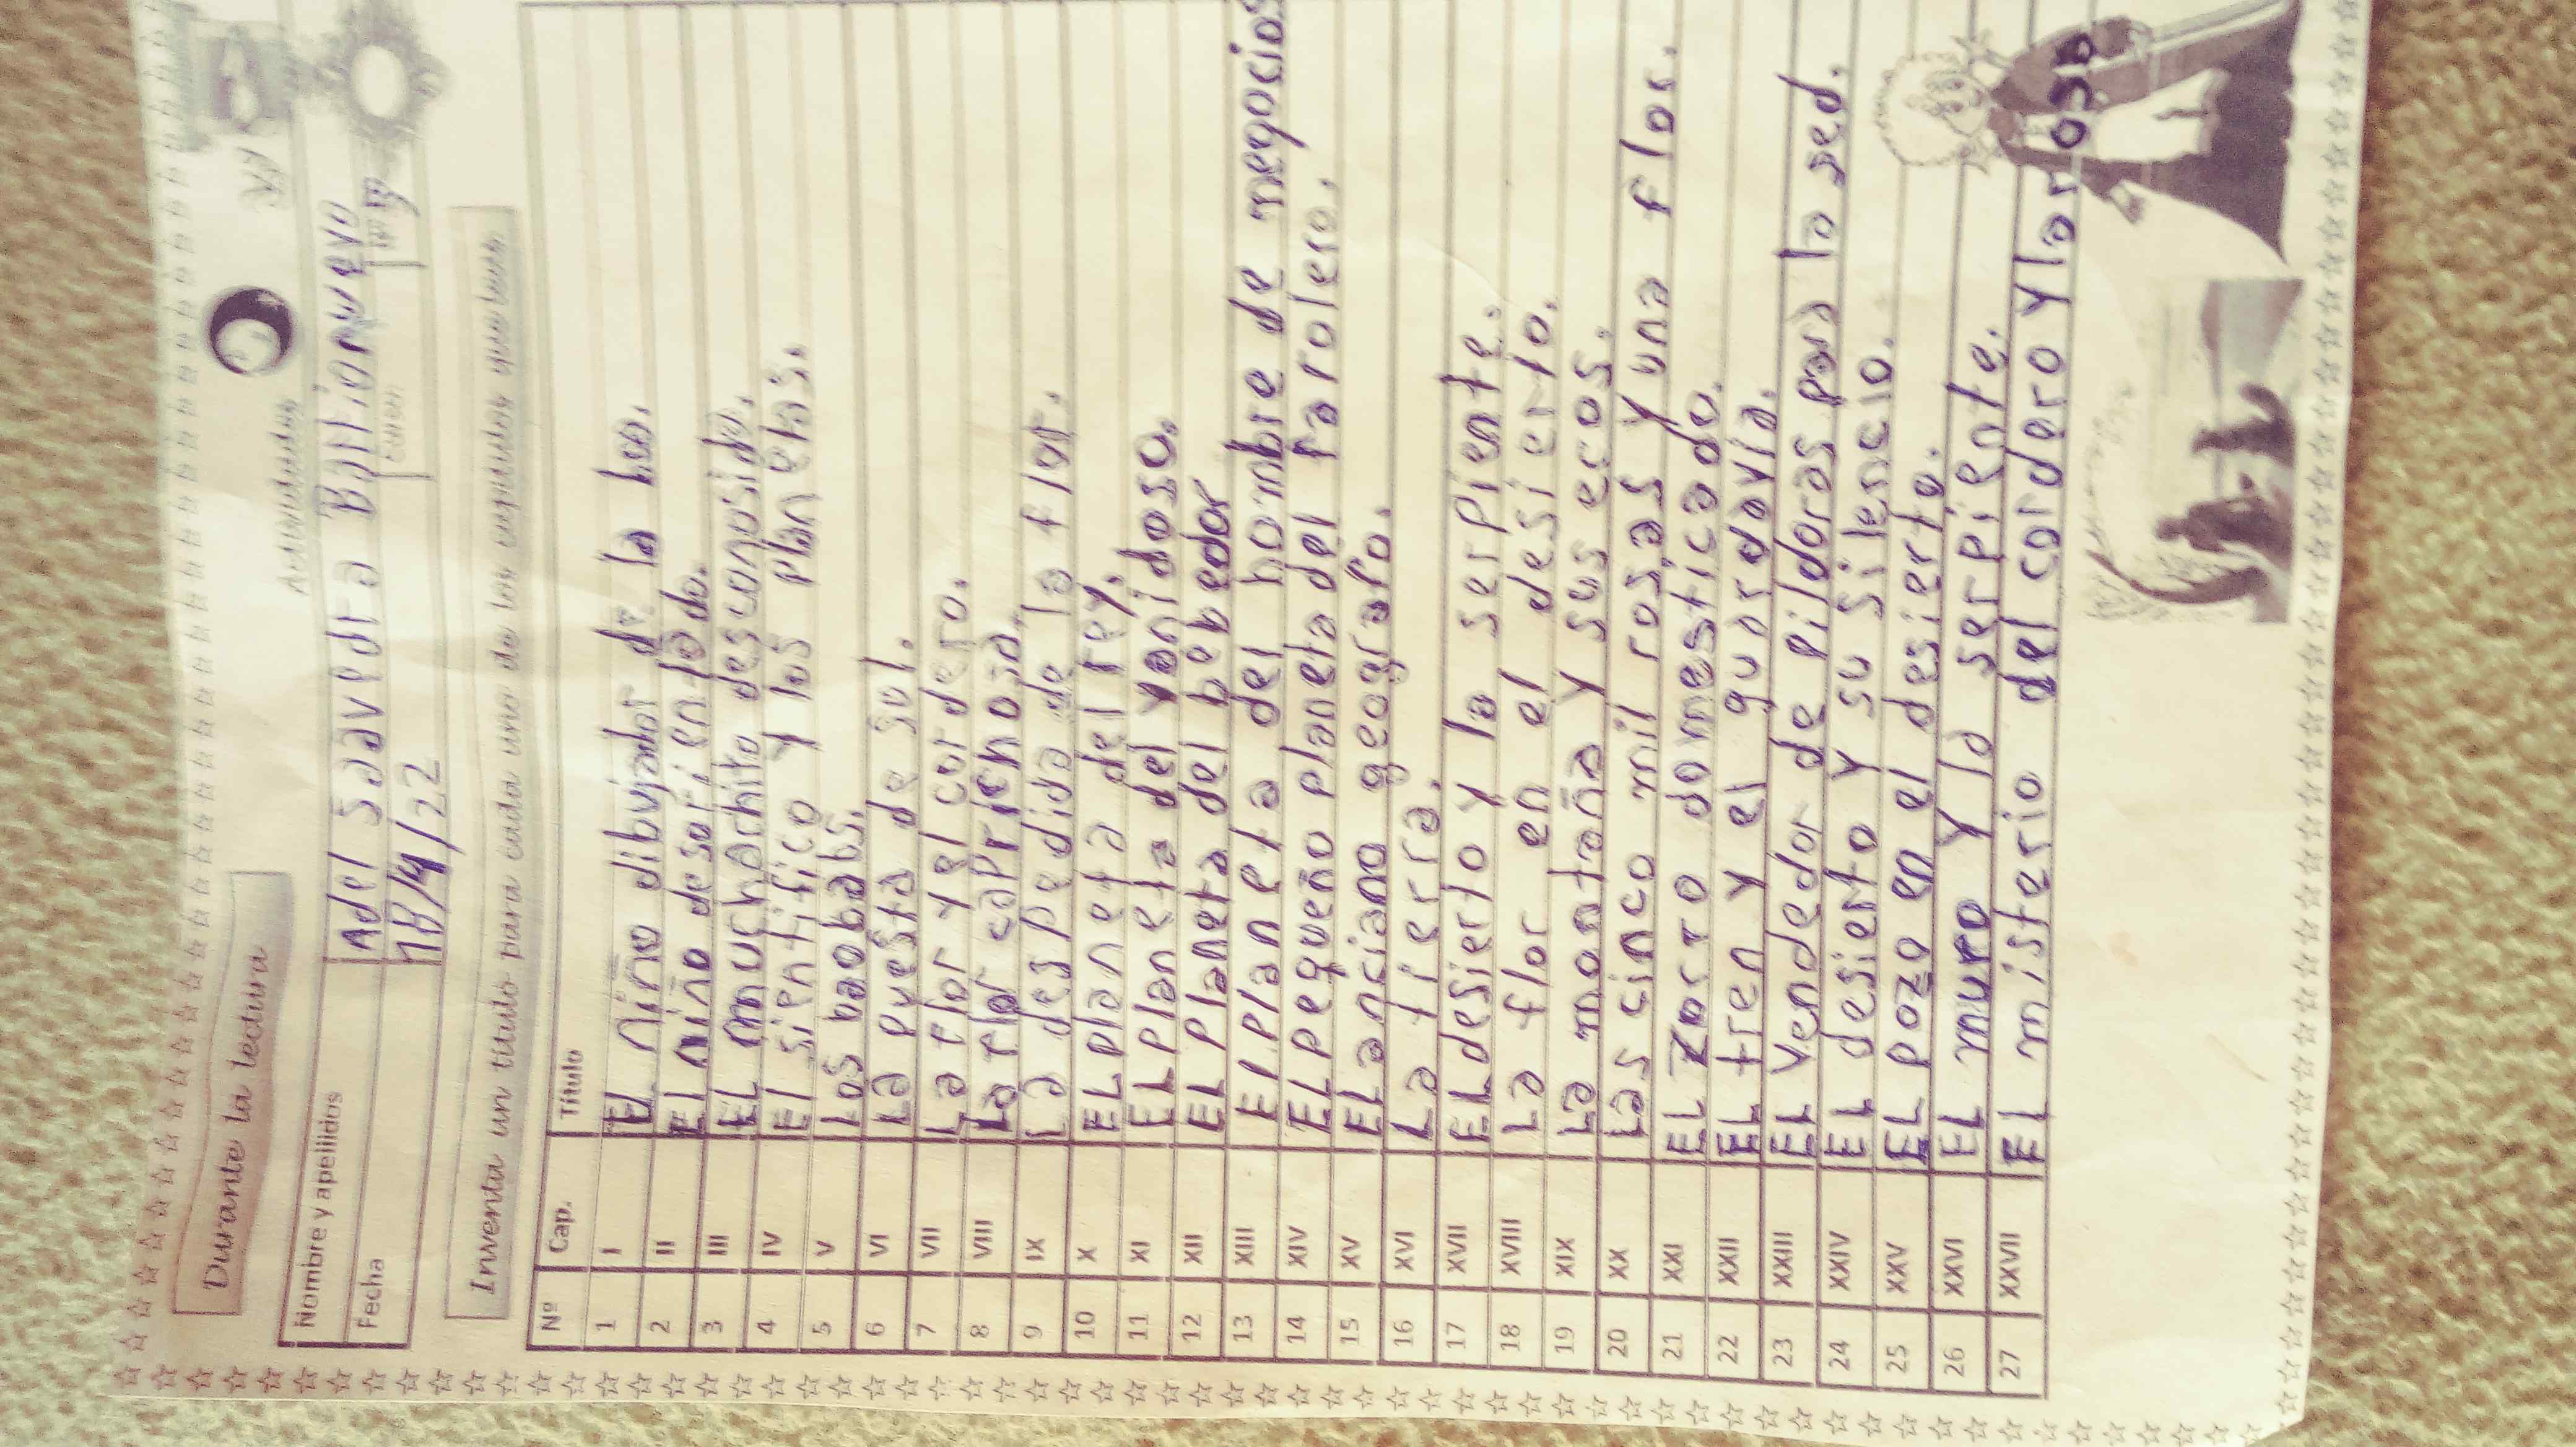 Durante la lectura
Actividades
Nombre y apellidos Adel Saavedra
Fecha 18/4/22
Inventa un título para cada uno de los capítulos que leas
Nº Cap. Título
1 I El niño dibujando de la boa.
2 II El niño desorientado.
3 III EL muchachito desconosido.
4 IV El sientifico y los planetas.
5 V Los baobabs.
6 VI La puesta de sol.
7 VII La flor y el cordero.
8 VIII La flor caprichosa.
9 IX La despedida de la flor.
10 X EL planeta del rey.
11 XI EL planeta del vanidoso.
12 XII EL planeta del bebedor
13 XIII El planeta del hombre de negocios
14 XIV EL pequeño planeta del farolero.
15 XV EL anciano geografo.
16 XVI La tierra.
17 XVII EL desierto y la serpiente.
18 XVIII La flor en el desierto.
19 XIX La montaña y sus ecos.
20 XX Las cinco mil rosas y una flor.
21 XXI EL zorro domesticado.
22 XXII EL tren y el guardavia.
23 XXIII EL vendedor de pildoras para la sed.
24 XXIV EL desierto y su silencio.
25 XXV EL pozo en el desierto.
26 XXVI EL muro y la serpiente.
27 XXVII EL misterio del cordero y la rosa